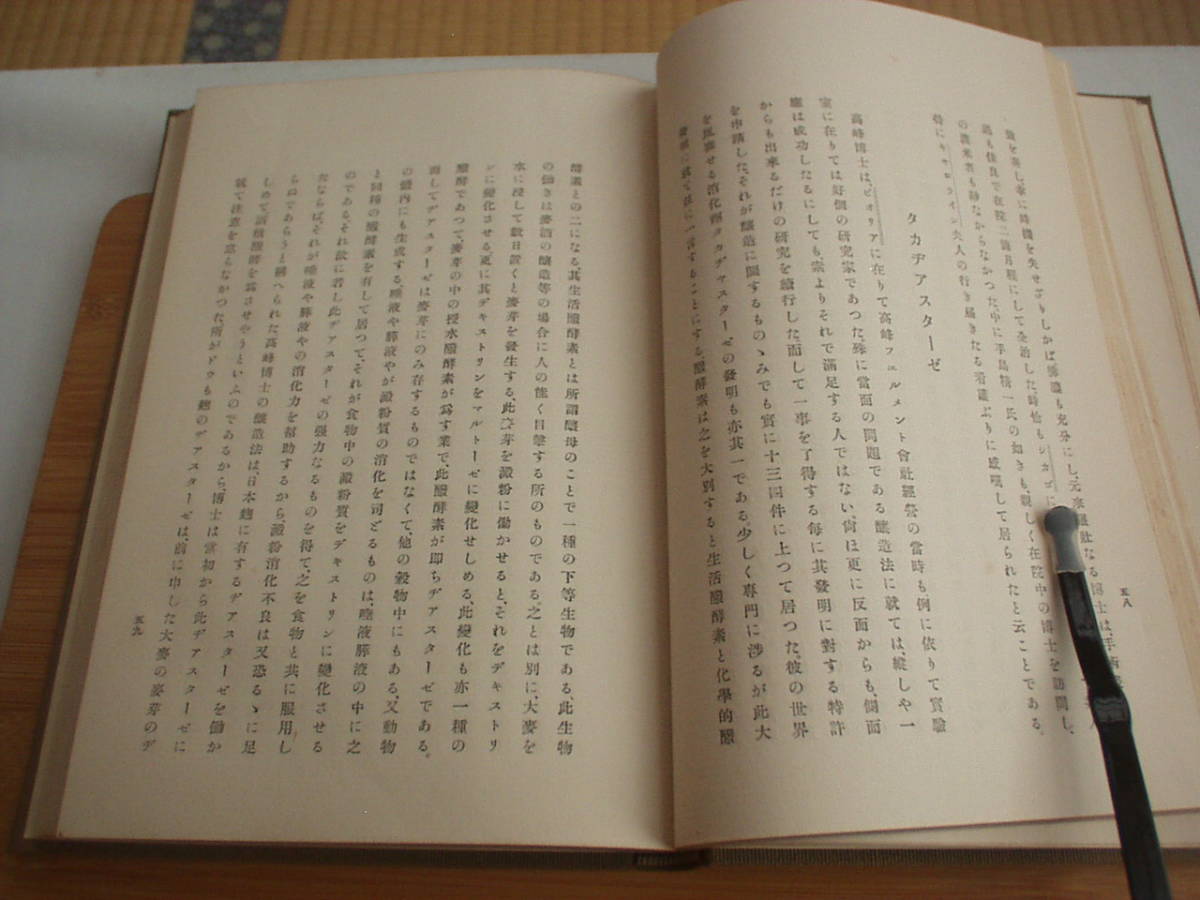 五八
機を察し
元來强壯なる博士は、手術
過も佳良で在院二箇月程にして全治した、時恰もシカゴに
の邦米者も尠なからなかつた中に平島精一氏の如きも、親しく在院中の博士を訪問し、
特にキャロライン夫人の行き届きたる看護ぶりに感嘆して居られたと云ことである。
タカヂアスターゼ
高峰博士は、ピオリアに在りて高峰フェルメント會社經營の當時も、例に依りて實驗
室に在りては好個の研究家であつた、殊に當面の問題である釀造法に就ては、縱しや一
應は成功したるにしても素よりそれで滿足する人ではない、尙ほ更に反面からも、側面
からも出來るだけの研究を續行した、而して一事を了得する每に其發明に對する特許
を申請した、それが釀造に關するものゝみでも實に十三四件に上つて居つた、彼の世界
を風靡せる消化劑タカヂアスターゼの發明も亦其一である。少しく專門に涉るが此大
發明に就て玆に一言することにする、醱酵素は之を大別すると生活醱酵素と化學的醱
酵素との二になる、其生活醱酵素とは所謂釀母のことで一種の下等生物である、此生物
の働きは麥酒の釀造等の場合に人の能く目擊する所のものである。之とは別に、大麥を
水に浸して數日置くと麥芽を發生する、此麥芽を澱粉に働かせると、それをデキストリ
ンに變化させる、更に其デキストリンをマルトーゼに變化せしめる、此變化も亦一種の
醱酵であつて、麥芽の中の授水醱酵素が爲す業で、此醱酵素が卽ちヂアスターゼである。
而してヂアスターゼは麥芽にのみ存するものではなくて、他の穀物中にもある、又動物
の體內にも生成する、唾液や膵液やが澱粉質の消化を司どるものは、唾液膵液の中に之
と同種の醱酵素を有して居つて、それが食物中の澱粉質をデキストリンに變化させる
のである、それ故に若し此ヂアスターゼの强力なるものを得て、之を食物と共に服用し
たならば、それが唾液や膵液やの消化力を幇助するから、澱粉消化不良は又恐るゝに足
らぬであらうと稱へられた、高峰博士の釀造法は、日本麴に有するヂアスターゼを働か
しめて、酒精醱酵を爲させやうといふのであるから、博士は當初から此ヂアスターゼに
就て注意を怠らなかつた、所がドウも麴のヂアスターゼは、前に申した大麥の麥芽のヂ
五九